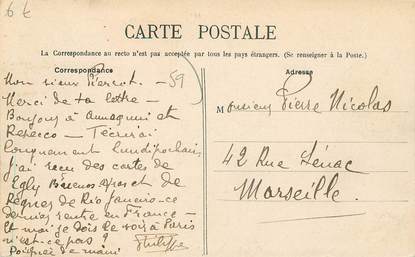 6 €
CARTE POSTALE
La Correspondance au recto n'est pas acceptée par tous les pays étrangers. (Se renseigner à la Poste.)
Correspondance
Adresse
59
Mon vieux Pierrot. —
Merci de ta lettre —
Bonjour à et
Rebecco — T'écrirai
longuement lundi prochain
j'ai reçu des cartes de
Egly Buenos Ayres et de
Règnes de Rio Janeiro — ce
dernier rentre en France —
Et moi je dois le voir à Paris
n'est-ce pas ?
Poignée de main
Philippe
Monsieur Pierre Nicolas
42 Rue Sénac
Marseille.